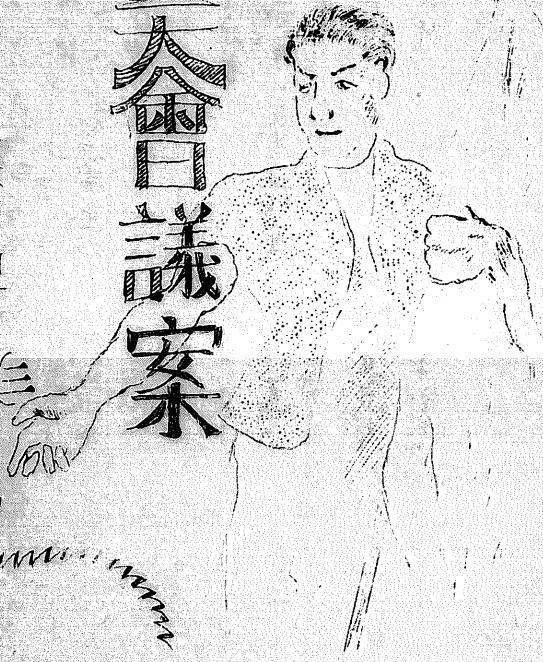 大會議案